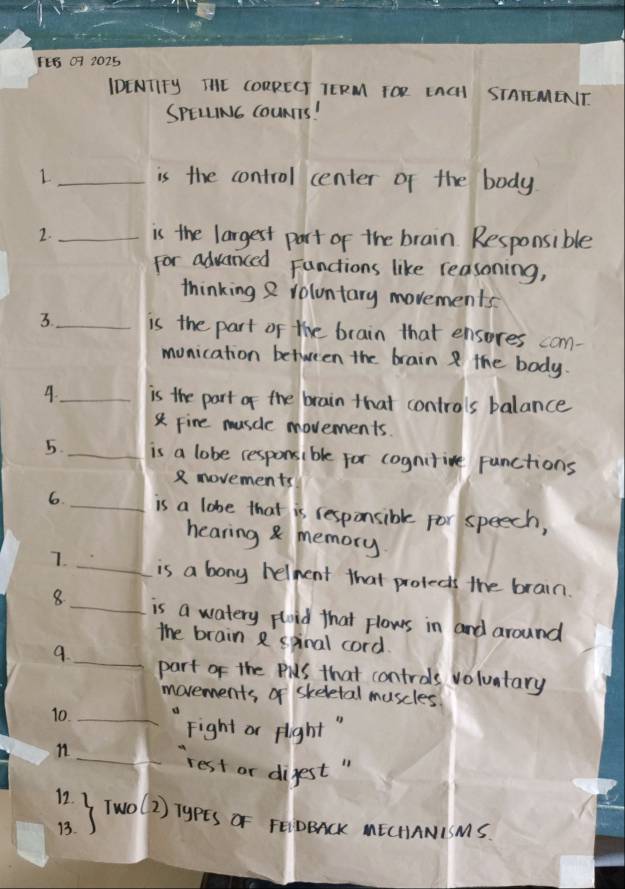 FEB 07 2025
IDENTIFY THE CORRECT TERM FOR EACH STATEMENT.
SPELLING COUNTS!
1. ______ is the control center of the body.
2. ______ is the largest part of the brain. Responsible
for advanced functions like reasoning,
thinking & voluntary movements
3. ______ is the part of the brain that ensures com-
munication between the brain & the body.
4. ______ is the part of the brain that controls balance
& fine muscle movements.
5. ______ is a lobe responsible for cognitive functions
& movements.
6. ______ is a lobe that is responsible for speech,
hearing & memory.
7. ______ is a bony helment that protects the brain.
8. ______ is a watery fluid that flows in and around
the brain & spinal cord.
9. ______ part of the PNS that controls voluntary
movements, of skeletal muscles.
10. ______ "Fight or flight"
11. ______ "rest or digest"
12. } TWO (2) TYPES OF FEEDBACK MECHANISMS.
13.